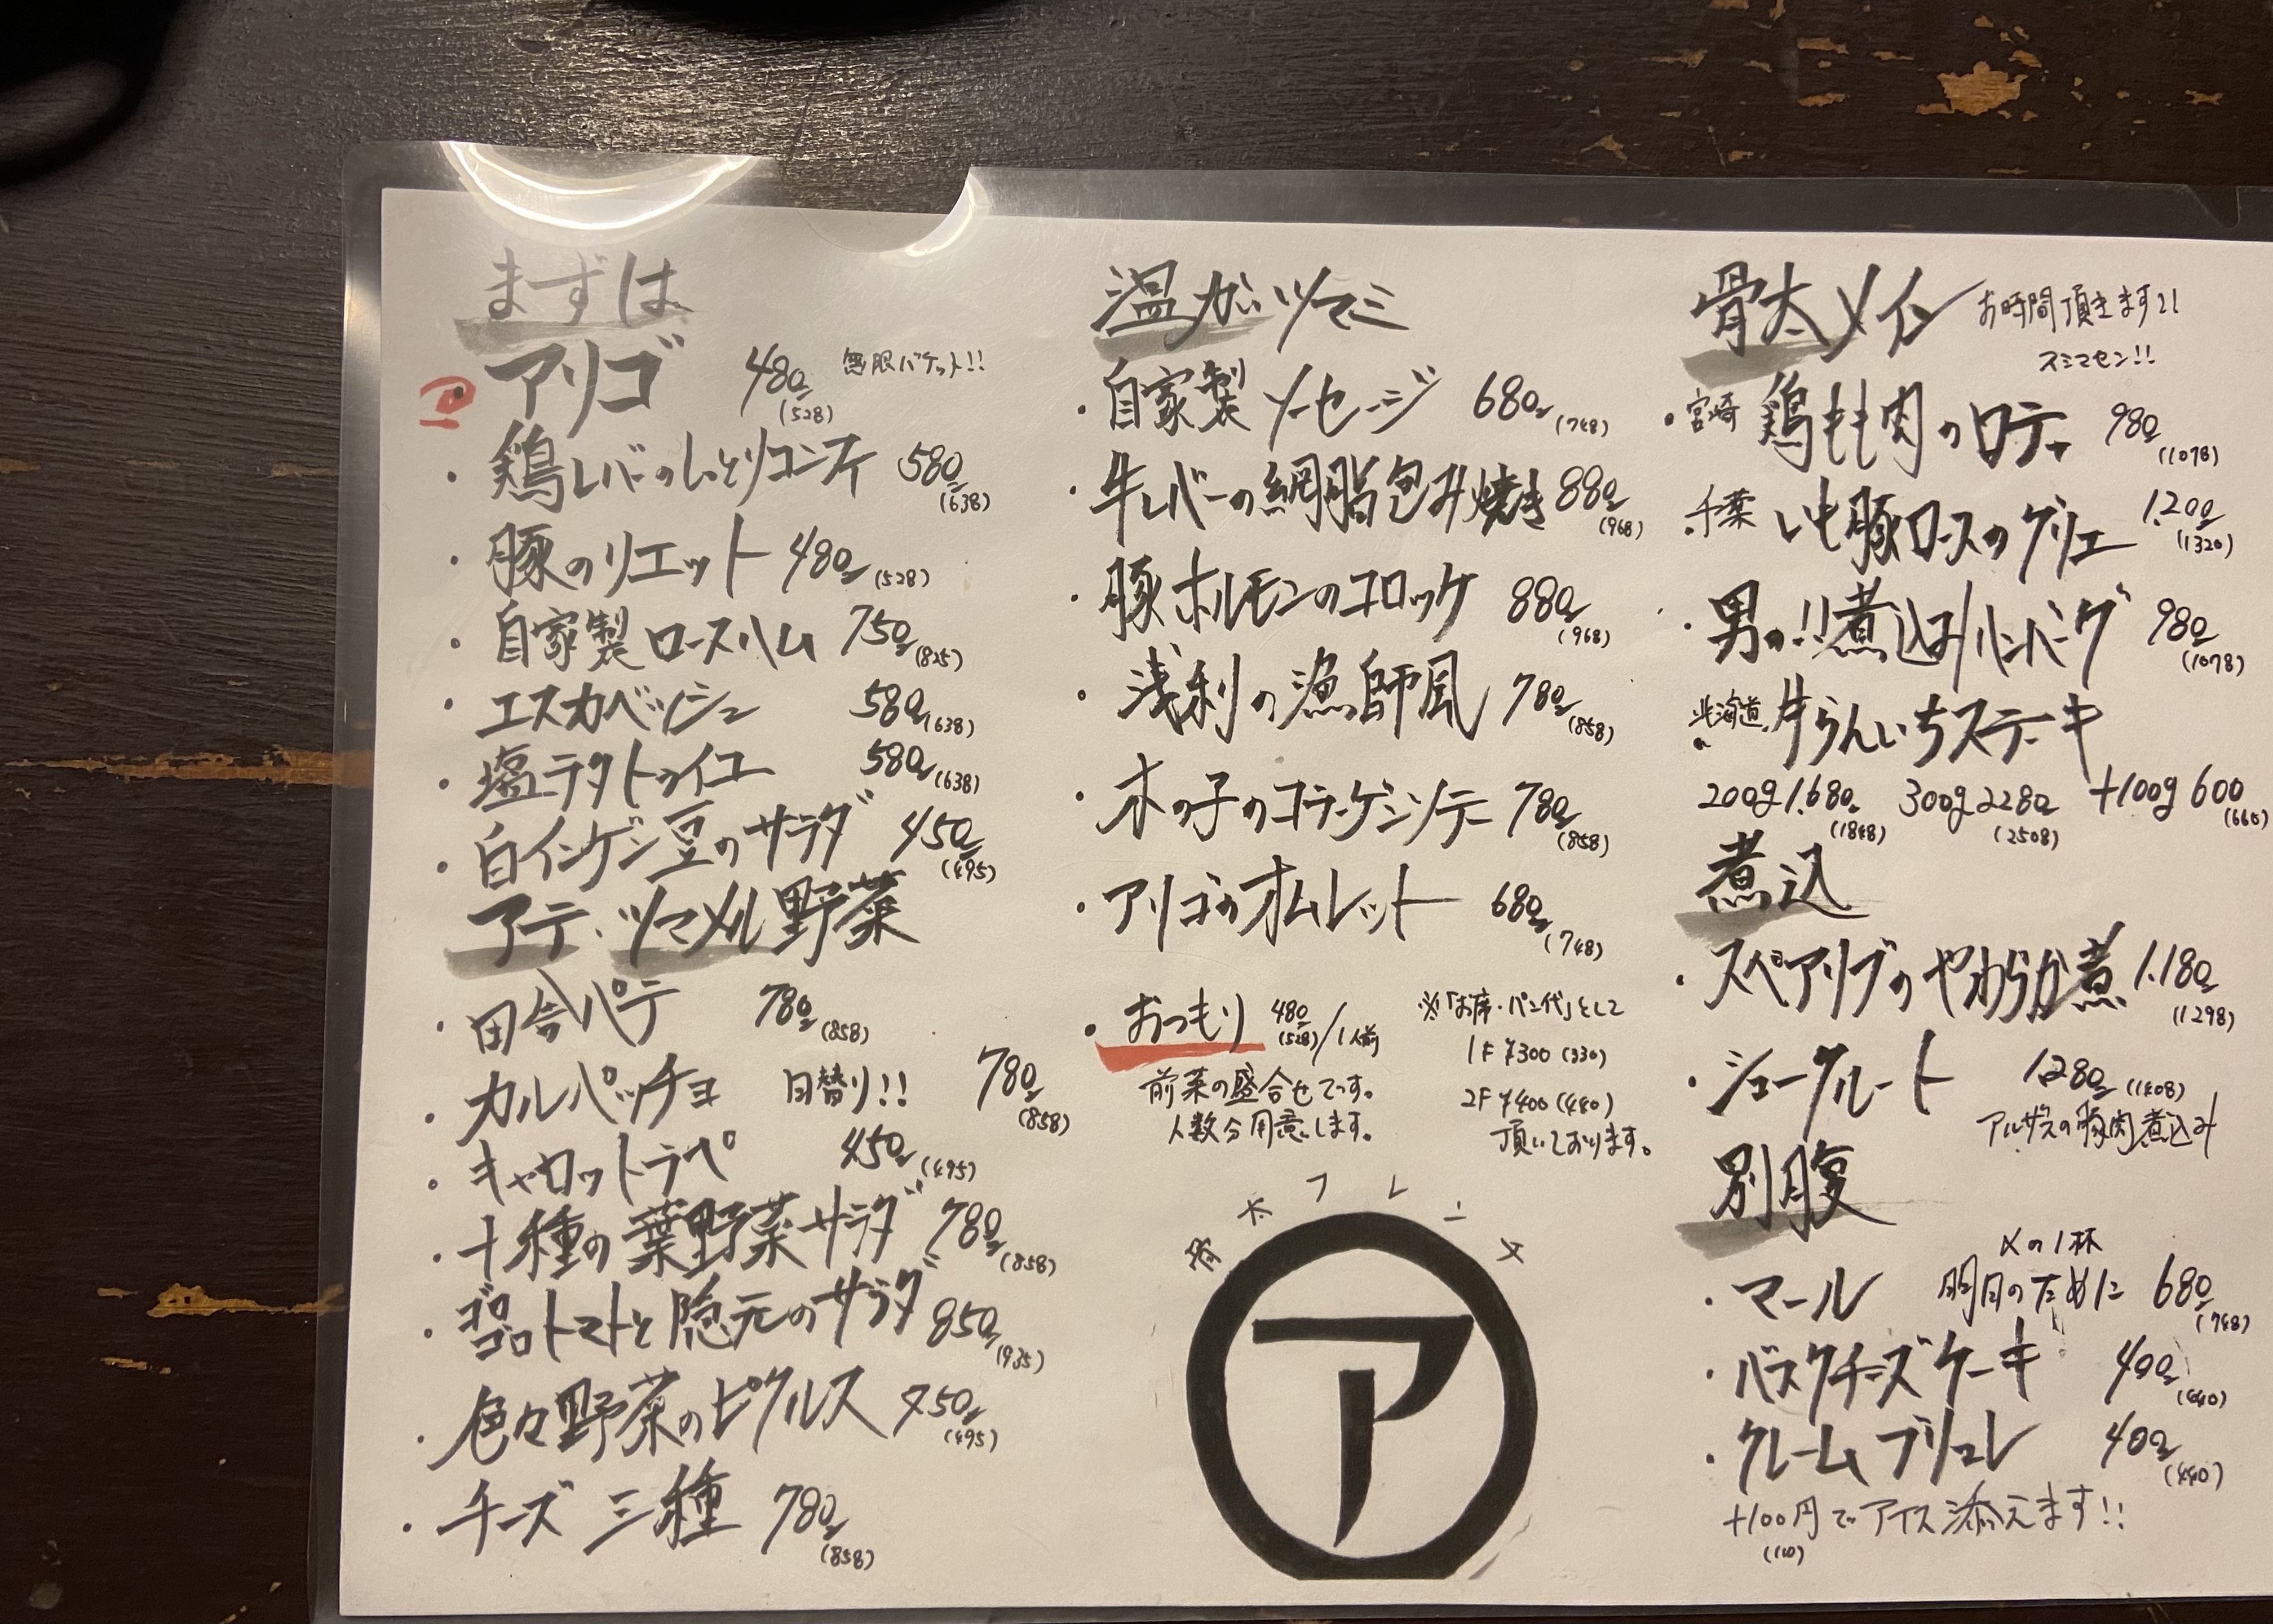 まずは
アリゴ 480 (528) 無限バケット!!
・鶏レバーのしっとりコンフィ 580 (638)
・豚のリエット 480 (528)
・自家製ロースハム 750 (825)
・エスカベッシュ 580 (638)
・塩ラタトゥイユ 580 (638)
・白インゲン豆のサラダ 450 (495)
アテ、ツマメル野菜
・田舎パテ 780 (858)
・カルパッチョ 日替り!! 780 (858)
・キャロットラペ 450 (495)
・十種の葉野菜サラダ 780 (858)
・ゴロゴロトマトと隠元のサラダ 850 (935)
・色々野菜のピクルス 450 (495)
・チーズ三種 780 (858)
温かいツマミ
・自家製ソーセージ 680 (748)
・牛レバーの網脂包み焼き 880 (968)
・豚ホルモンのコロッケ 880 (968)
・浅利の漁師風 780 (858)
・木の子のコラーゲンソテー 780 (858)
・アリゴのオムレット 680 (748)
・おつもり 480 (528)/1人前
前菜の盛合せです。
人数分用意します。
※「お席・パン代」として
1F ¥300 (330)
2F ¥400 (440)
頂いております。
骨太フレンチ
ア
骨太メイン お時間頂きます!!
スミマセン!!
・宮崎 鶏もも肉のロティ 980 (1078)
・千葉 いも豚ロースのグリエ 1.200 (1320)
・男の!!煮込みハンバーグ 980 (1078)
・北海道 牛らんいちステーキ
200g 1.680 (1848) 300g 2280 (2508) +100g 600 (660)
煮込
・スペアリブのやわらか煮 1.180 (1298)
・シュークルート 1280 (1408)
アルザスの豚肉煮込み
別腹
〆の1杯
・マール 明日のために 680 (748)
・バスクチーズケーキ 400 (440)
・クレームブリュレ 400 (440)
+100円でアイス添えます!!
(110)